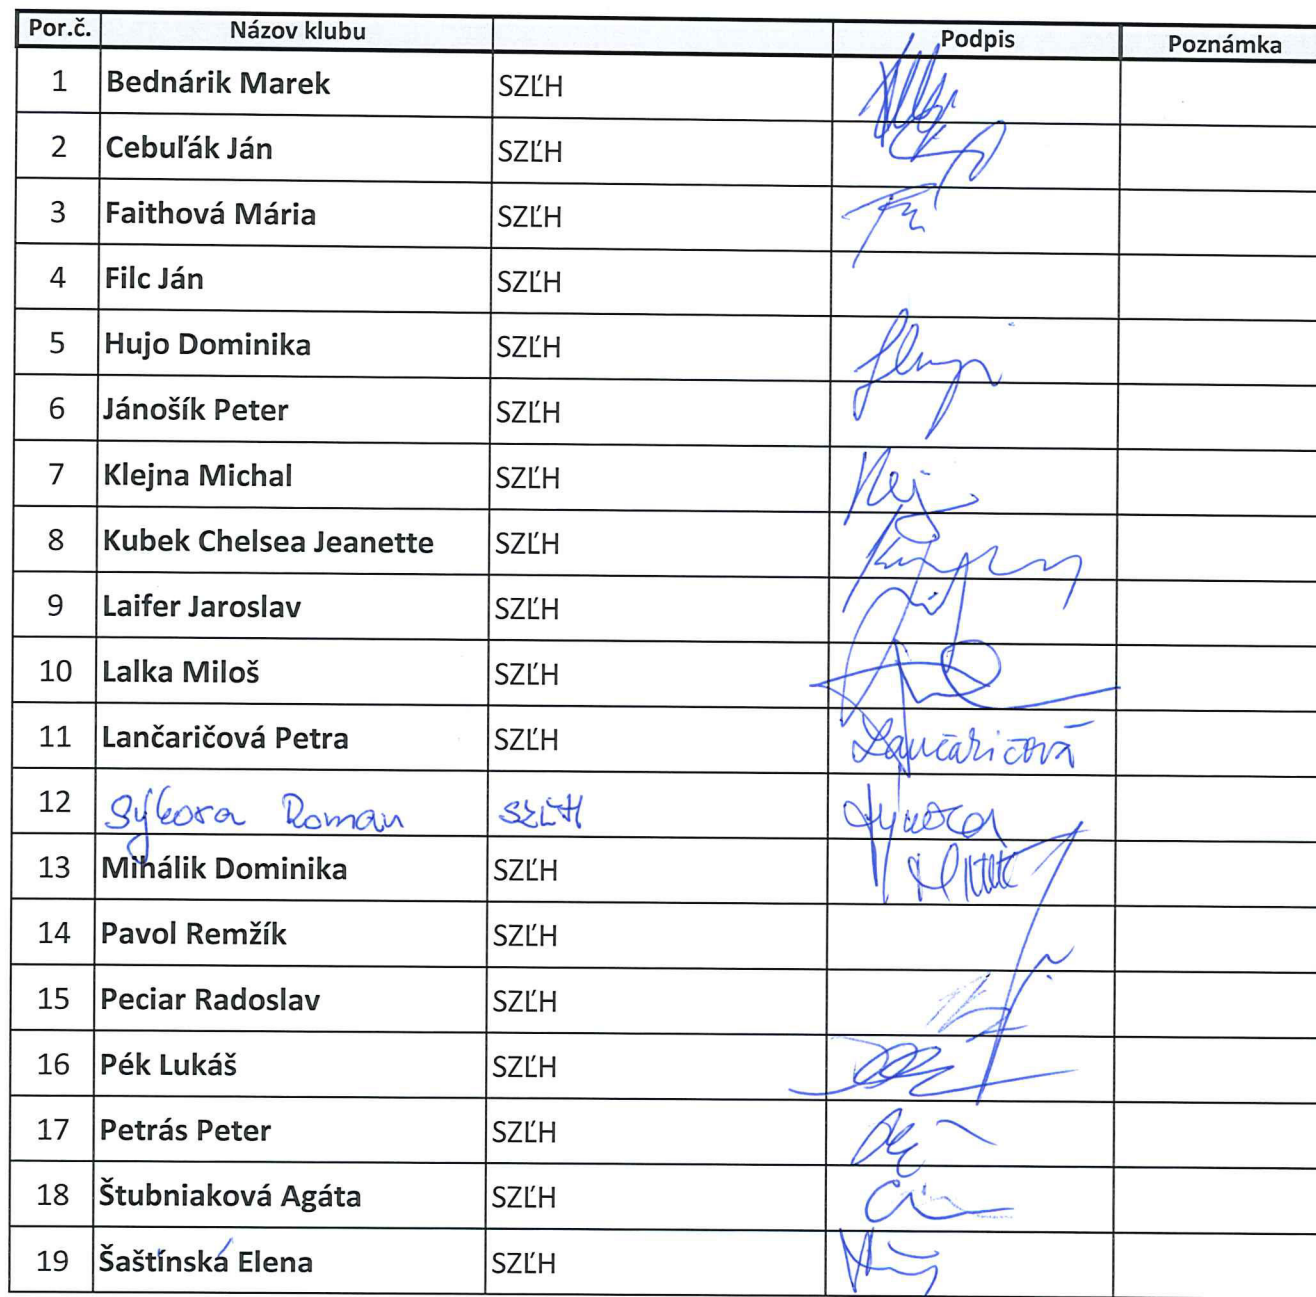 Por.č. Názov klubu Podpis Poznámka
1 Bednárik Marek SZĽH
2 Cebuľák Ján SZĽH
3 Faithová Mária SZĽH
4 Filc Ján SZĽH
5 Hujo Dominika SZĽH
6 Jánošík Peter SZĽH
7 Klejna Michal SZĽH
8 Kubek Chelsea Jeanette SZĽH
9 Laifer Jaroslav SZĽH
10 Lalka Miloš SZĽH
11 Lančaričová Petra SZĽH Lančaričová
12 Sýkora Roman SZĽH Sýkora
13 Mihálik Dominika SZĽH
14 Pavol Remžík SZĽH
15 Peciar Radoslav SZĽH
16 Pék Lukáš SZĽH
17 Petrás Peter SZĽH
18 Štubniaková Agáta SZĽH
19 Šaštínská Elena SZĽH